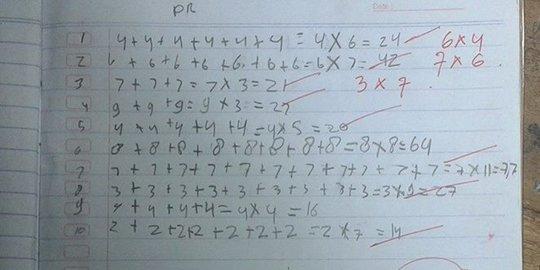 PR
Date :
1 4+4+4+4+4+4 = 4X6 = 24 6x4
2 6+6+6+6+6+6+6=6X7=42 7x6
3 7+7+7=7X3=21 3x7
4 9+9+9=9X3=27
5 4+4+4+4+4=4X5=20
6 8+8+8+8+8+8+8+8=8X8=64
7 7+7+7+7+7+7+7+7+7+7+7=7X11=77
8 3+3+3+3+3+3+3+3+3=3X9=27
9 4+4+4+4=4X4=16
10 2+2+2+2+2+2+2=2X7=14